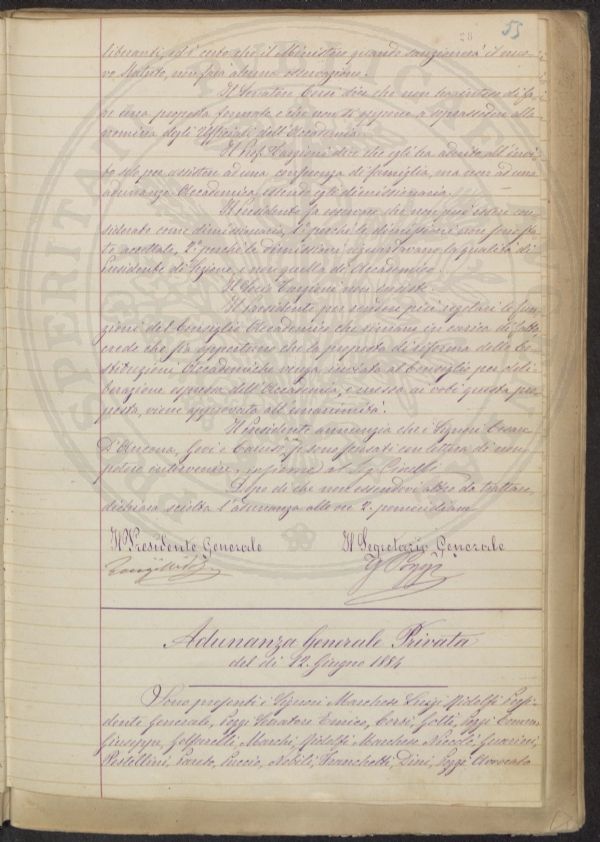 28 55
liberanti, ed è certo che il Ministero quando sanzionerà il nuo-
vo Statuto, non farà alcuna osservazione.
Il Senatore Corsi dice che non ha inteso di fa-
re una proposta formale e che non si oppone a soprassedere alla
nomina degli Ufficiali dell'Accademia.
Il Prof. Targioni dice che egli ha aderito all'invi-
to solo per assistere ad una conferenza di famiglia, ma non ad una
adunanza Accademica essendo egli dimissionario.
Il Presidente fa osservare che non può esser con-
siderato come dimissionario, 1.° perchè le dimissioni non furo-
no accettate, 2.° perchè le dimissioni riguardavano la qualità di
Presidente di Sezione, e non quella di Accademico.
Il Socio Targioni non insiste.
Il Presidente per rendere più regolari le fun-
zioni del Consiglio Accademico che rimane in carica di fatto
crede che sia opportuno che la proposta di riforma delle Co-
stituzioni Accademiche venga inviata al Consiglio per deli-
berazione espressa dell'Accademia, e messa ai voti questa pro-
posta, viene approvata all'unanimità.
Il Presidente annunzia che i Signori Cesare
D'Ancona, Govi e Caruso si sono scusati con lettera di non
potere intervenire, insieme al Sig.
Dopo di che non essendovi altro da trattare
dichiara sciolta l'adunanza alle ore 2. pomeridiane.
Il Presidente Generale Il Segretario Generale
Poggi
Adunanza Generale Privata
del dì 12. Giugno 1884
Sono presenti i Signori Marchese Luigi Ridolfi Presi-
dente Generale, Poggi Senatore Enrico, Corsi, Gotti, Poggi Comm.
Giuseppe, Golfarelli, Marchi, Ridolfi Marchese Niccolò, Guarini,
Pestellini, Pareto, Puccio, Nobili, Franchetti, Dini, Poggi Avvocato